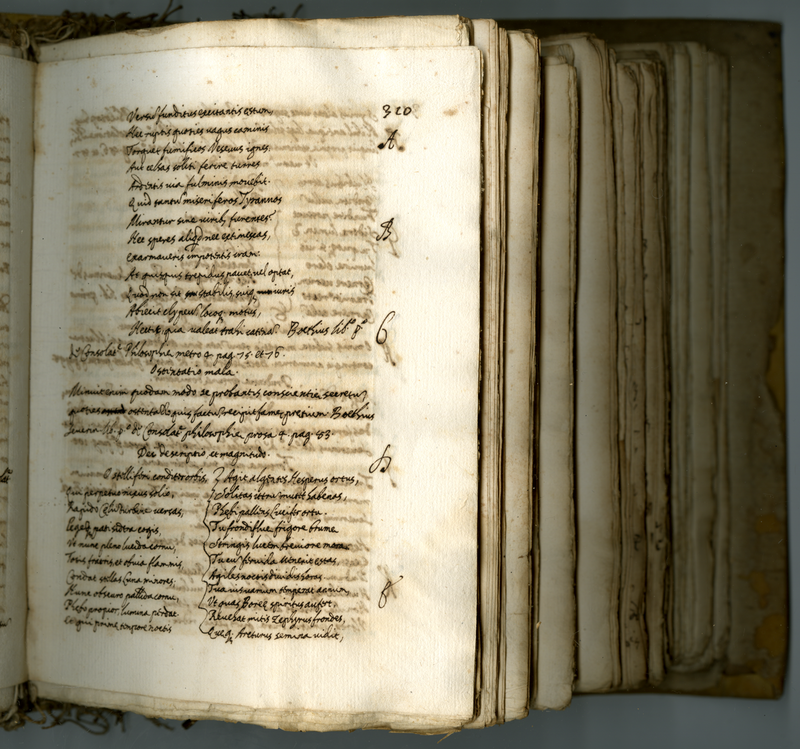 320
Versũ funditus exitantis estum,
Nec ruptis quoties vagus caminis
Torquet fumificos Vesevus ignes,
Aut celsas soliti ferire turres
Ardentis via fulminis movebit.
Quid tantũ miseri feros Tyrannos
Mirantur sine virib, furentes?
Nec speres aliqd nec extimescas,
exarmaveris impotentis iram:
At quisquis trepidus pavet, vel optat,
Quod non sit stabilis, suiq iuris
Abiecit clypeũ, locoq. motus,
Nectit, qua valeat trahi catenã. Boethius lib.
Consolat. Philosophiæ metro 4. pag. 75. et 76.
Ostentatio mala.
Minuit enim quodam modo se probantis conscientiæ secretũ,
quoties ostentando quis factũ recipit famæ pretium. Boethius
Severin. lib. Consolat. philosophiæ, prosa 4. pag. 83
Dei descriptio et magnitudo.
O stelliferi conditor orbis,
Qui perpetuo nexus solio,
Rapido Cælũ turbine versas,
Legẽq pati sidera cogis,
Ut nunc pleno lucida cornu,
Totis fratris et obvia flammis,
Condat stellas Luna minores,
Nunc obscuro pallida cornu,
Phebo propior, lumina perdat
Et qui primæ tempore noctis
Agit algentes Hesperus ortus,
Solitas iterũ mutet habenas,
Phebi pallens Lucifer ortu.
Tu frondifluæ frigore brumæ
Stringis lucem breviore mora:
Tu cũ fervida venerit estas,
Agiles noctis dividis horas
Tua vis varium temperat annum,
Ut quas Boreæ spiritus aufert,
Revehat mitis Zephyrus frondes,
Queq Arcturus semina vidit,
A
B
C